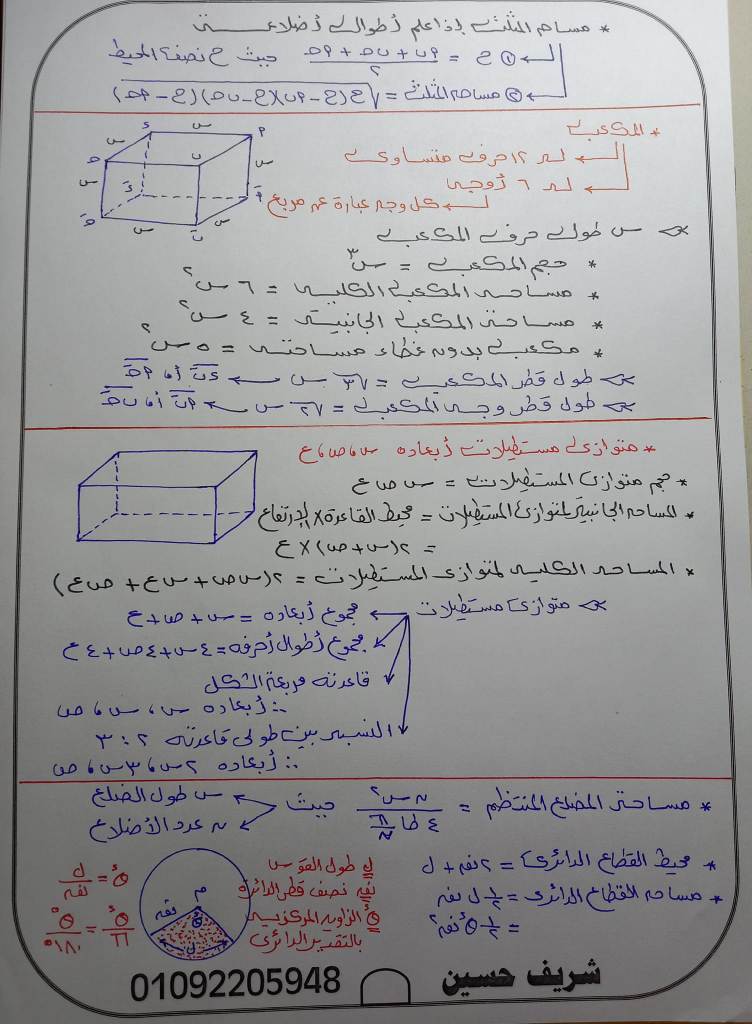 * مساحه المثلث إذا علم أطوال أضلاعه
① ح = (أب + ب حـ + أ حـ) / ٢ حيث ح نصف المحيط
② مساحه المثلث = √ح(ح - أب)(ح - ب حـ)(ح - أ حـ)
* المكعب
له ١٢ حرف متساوى
له ٦ أوجه
كل وجه عبارة عن مربع
س طول حرف المكعب
* حجم المكعب = س٣
* مساحه المكعب الكليه = ٦ س٢
* مساحة المكعب الجانبية = ٤ س٢
* مكعب بدون غطاء مساحته = ٥ س٢
طول قطر المكعب = √٣ س
طول قطر وجه المكعب = √٢ س
* متوازى مستطيلات أبعاده س ، ص ، ع
* حجم متوازى المستطيلات = س ص ع
* المساحه الجانبية لمتوازى المستطيلات = محيط القاعدة × الإرتفاع
= ٢(س + ص) × ع
* المساحه الكليه لمتوازى المستطيلات = ٢(س ص + س ع + ص ع)
متوازى مستطيلات
مجموع أبعاده = س + ص + ع
مجموع أطوال أحرفه = ٤ س + ٤ ص + ٤ ع
قاعدته مربعة الشكل
∴ أبعاده س ، س ، ص
النسبه بين طولى قاعدته ٢ : ٣
∴ أبعاده ٢ س ، ٣ س ، ص
* مساحة المضلع المنتظم = ن س٢ / ٤ ظا π/ن حيث
س طول الضلع
ن عدد الأضلاع
* محيط القطاع الدائرى = ٢ نق + ل
* مساحه القطاع الدائرى = ١/٢ ل نق
= ١/٢ θء نق٢
ل طول القوس
نق نصف قطر الدائرة
θء الزاويه المركزيه
بالتقدير الدائرى
م
نق
θ
ل
θء = ل / نق
θء / π = θ° / ١٨٠°
شريف حسين
01092205948